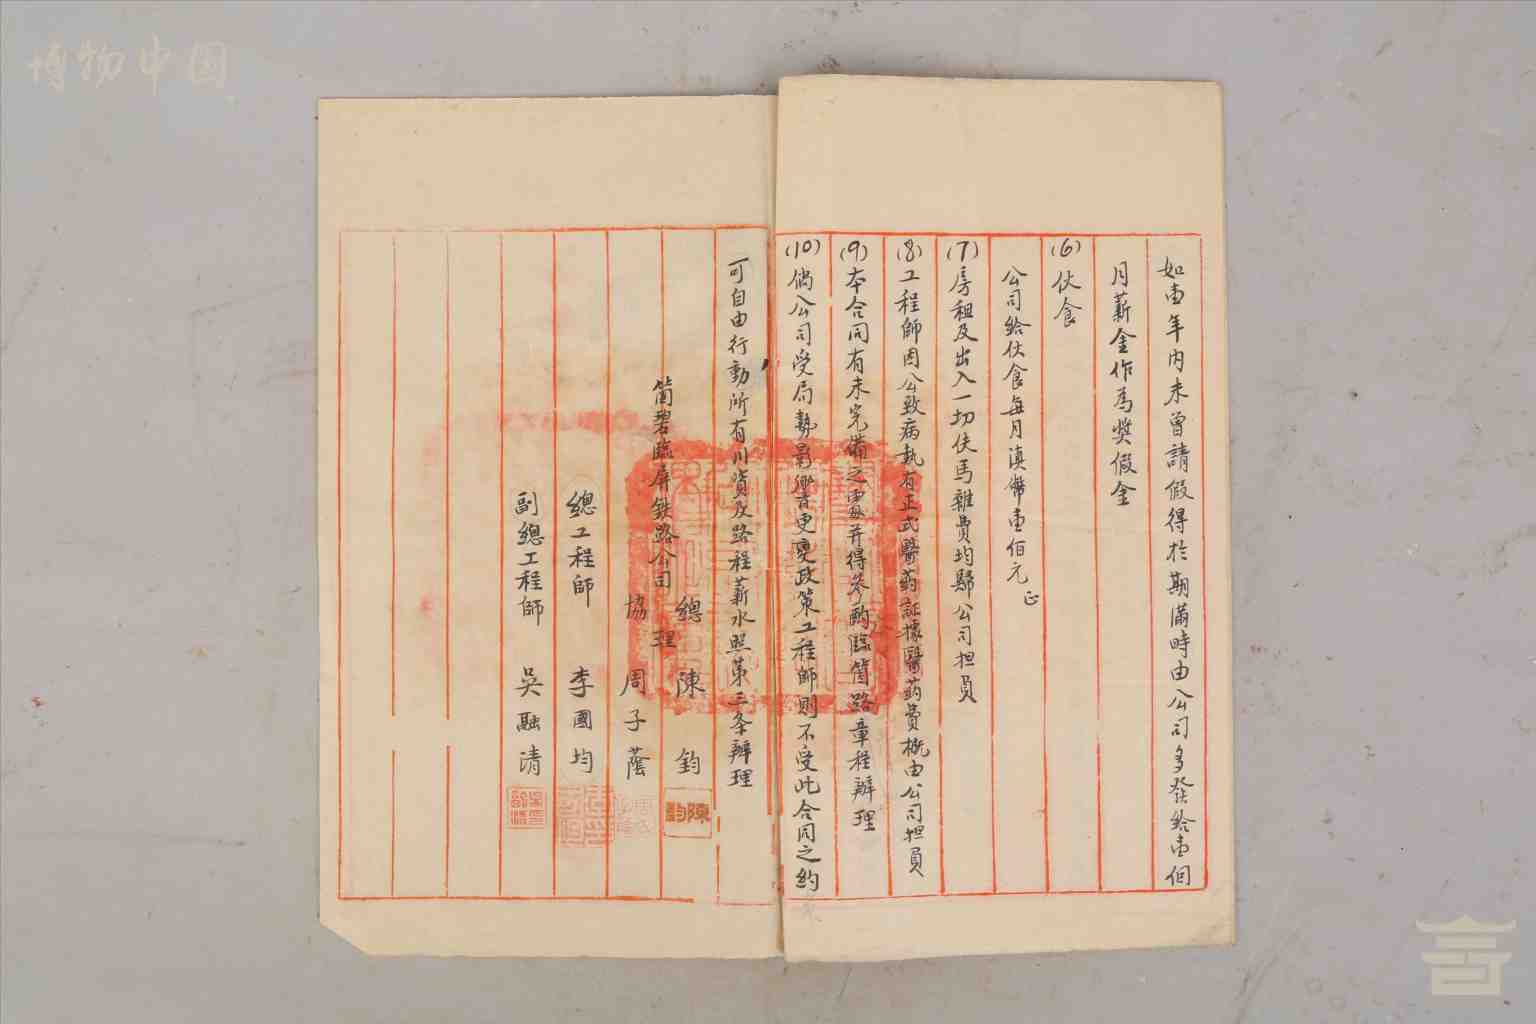 如壹年内未曾請假得於期滿時由公司多發給壹個
月薪金作為獎假金
(6) 伙食
公司給伙食每月滇幣壹佰元正
(7) 房租及出入一切伕馬雜費均歸公司担負
(8) 工程師因公致病執有正式醫药証據醫药費概由公司担負
(9) 本合同有未完備之處并得參酌臨箇路章程辦理
(10) 倘公司受局勢影響更變政策工程師則不受此合同之約
可自由行動所有川資及路程薪水照第三条辦理
箇碧臨屏鉄路公司
總理 陳鈞
協理 周子蔭
總工程師 李國均
副總工程師 吳融清
陳鈞
博物中国